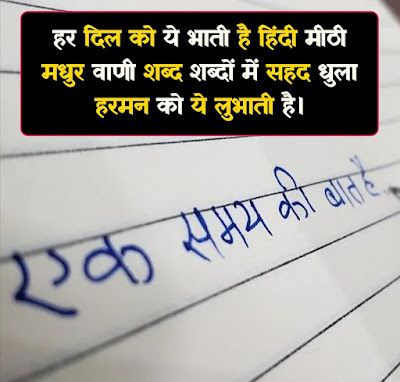 हर दिल को ये भाती है हिंदी मीठी
मधुर वाणी शब्द शब्दों में सहद धुला
हरमन को ये लुभाती है।
एक समय की बात है..